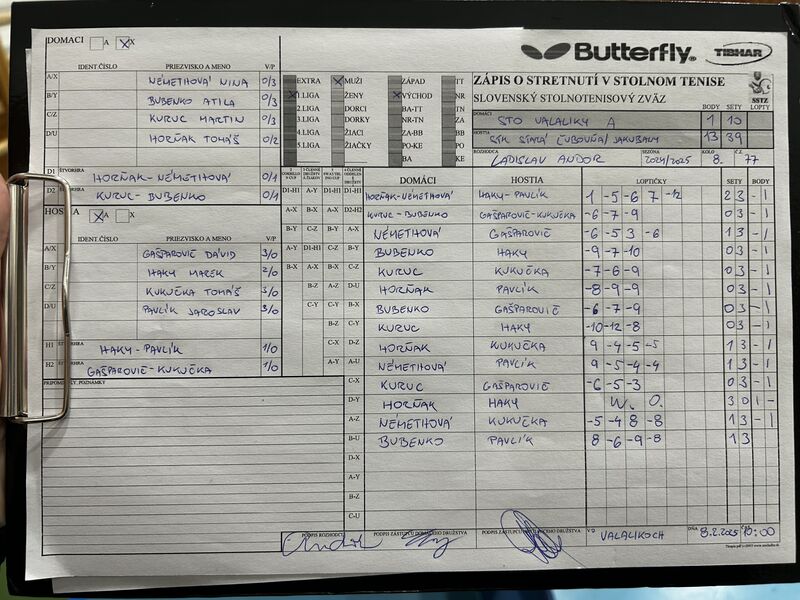 DOMÁCI A X
Butterfly
TIBHAR
IDENT.ČÍSLO PRIEZVISKO A MENO V/P
A/X NÉMETHOVÁ NINA 0/3
B/Y BUBENKO ATILA 0/3
C/Z KURUC MARTIN 0/3
D/U HORŇAK TOMÁŠ 0/2
D1 ŠTVORHRA HORŇAK-NÉMETHOVÁ 0/1
D2 KURUC-BUBENKO 0/1
HOSTIA A X
IDENT.ČÍSLO PRIEZVISKO A MENO V/P
A/X GAŠPAROVIČ DÁVID 3/0
B/Y HAKY MAREK 2/0
C/Z KUKUČKA TOMÁŠ 3/0
D/U PAVLÍK JAROSLAV 3/0
H1 HAKY-PAVLÍK 1/0
H2 GAŠPAROVIČ-KUKUČKA 1/0
PRIPOMIENKY, POZNÁMKY
EXTRA MUŽI ZÁPAD TT
1.LIGA ŽENY VÝCHOD NR
2.LIGA DORCI BA-TT TN
3.LIGA DORKY NR-TN ZA
4.LIGA ŽIACI ZA-BB BB
5.LIGA ŽIAČKY PO-KE PO
BA KE
ZÁPIS O STRETNUTÍ V STOLNOM TENISE
SLOVENSKÝ STOLNOTENISOVÝ ZVÄZ
SSTZ
BODY SETY LOPTY
DOMÁCI STO VALALIKY A 1 10
HOSTIA STK STARÁ ĽUBOVŇA/JAKUBANY 13 39
ROZHODCA LADISLAV ANDOR SEZÓNA 2024/2025 KOLO 8. Č.Z. 77
DOMÁCI HOSTIA LOPTIČKY SETY BODY
D1-H1 A-Y D1-H1 A-Y D1-H1 HORŇAK-NÉMETHOVÁ HAKY-PAVLÍK 1 -5 -6 7 -12 2 3 - 1
A-X B-X A-X D2-H2 KURUC-BUBENKO GAŠPAROVIČ-KUKUČKA -6 -7 -9 0 3 - 1
B-Y C-Z B-Y A-X NÉMETHOVÁ GAŠPAROVIČ -6 -5 3 -6 1 3 - 1
A-Y D1-H1 C-Z B-Y BUBENKO HAKY -9 -7 -10 0 3 - 1
B-X A-X D1-H1 C-Z KURUC KUKUČKA -7 -6 -9 0 3 - 1
B-Z A-Z D-U HORŇAK PAVLÍK -8 -9 -9 0 3 - 1
C-Y C-Y B-X BUBENKO GAŠPAROVIČ -6 -7 -9 0 3 - 1
B-Z C-Y KURUC HAKY -10 -12 -8 0 3 - 1
C-X D-Z HORŇAK KUKUČKA 9 -4 -5 -5 1 3 - 1
A-Y A-U NÉMETHOVÁ PAVLÍK 9 -5 -4 -4 1 3 - 1
C-X KURUC GAŠPAROVIČ -6 -5 -3 0 3 - 1
D-Y HORŇAK HAKY W. O. 3 0 1 -
A-Z NÉMETHOVÁ KUKUČKA -5 -4 8 -8 1 3 - 1
B-U BUBENKO PAVLÍK 8 -6 -9 -8 1 3
D-X
A-Y
B-Z
C-U
PODPIS ROZHODCU PODPIS ZÁSTUPCU DOMÁCEHO DRUŽSTVA PODPIS ZÁSTUPCU HOSŤUJÚCEHO DRUŽSTVA V/O VALALIKOCH DŇA 8.2.2025 ČAS 10:00